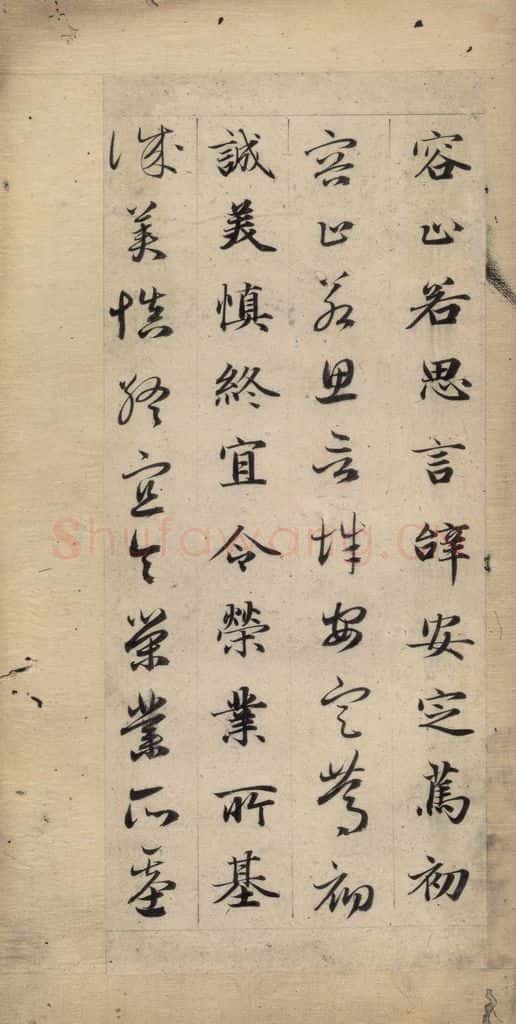 容止若思言辝安定篤初
容止若思言辝安定篤初
誠美慎終宜令榮業所基
誠美慎終宜令榮業所基
Shufawang.Cn